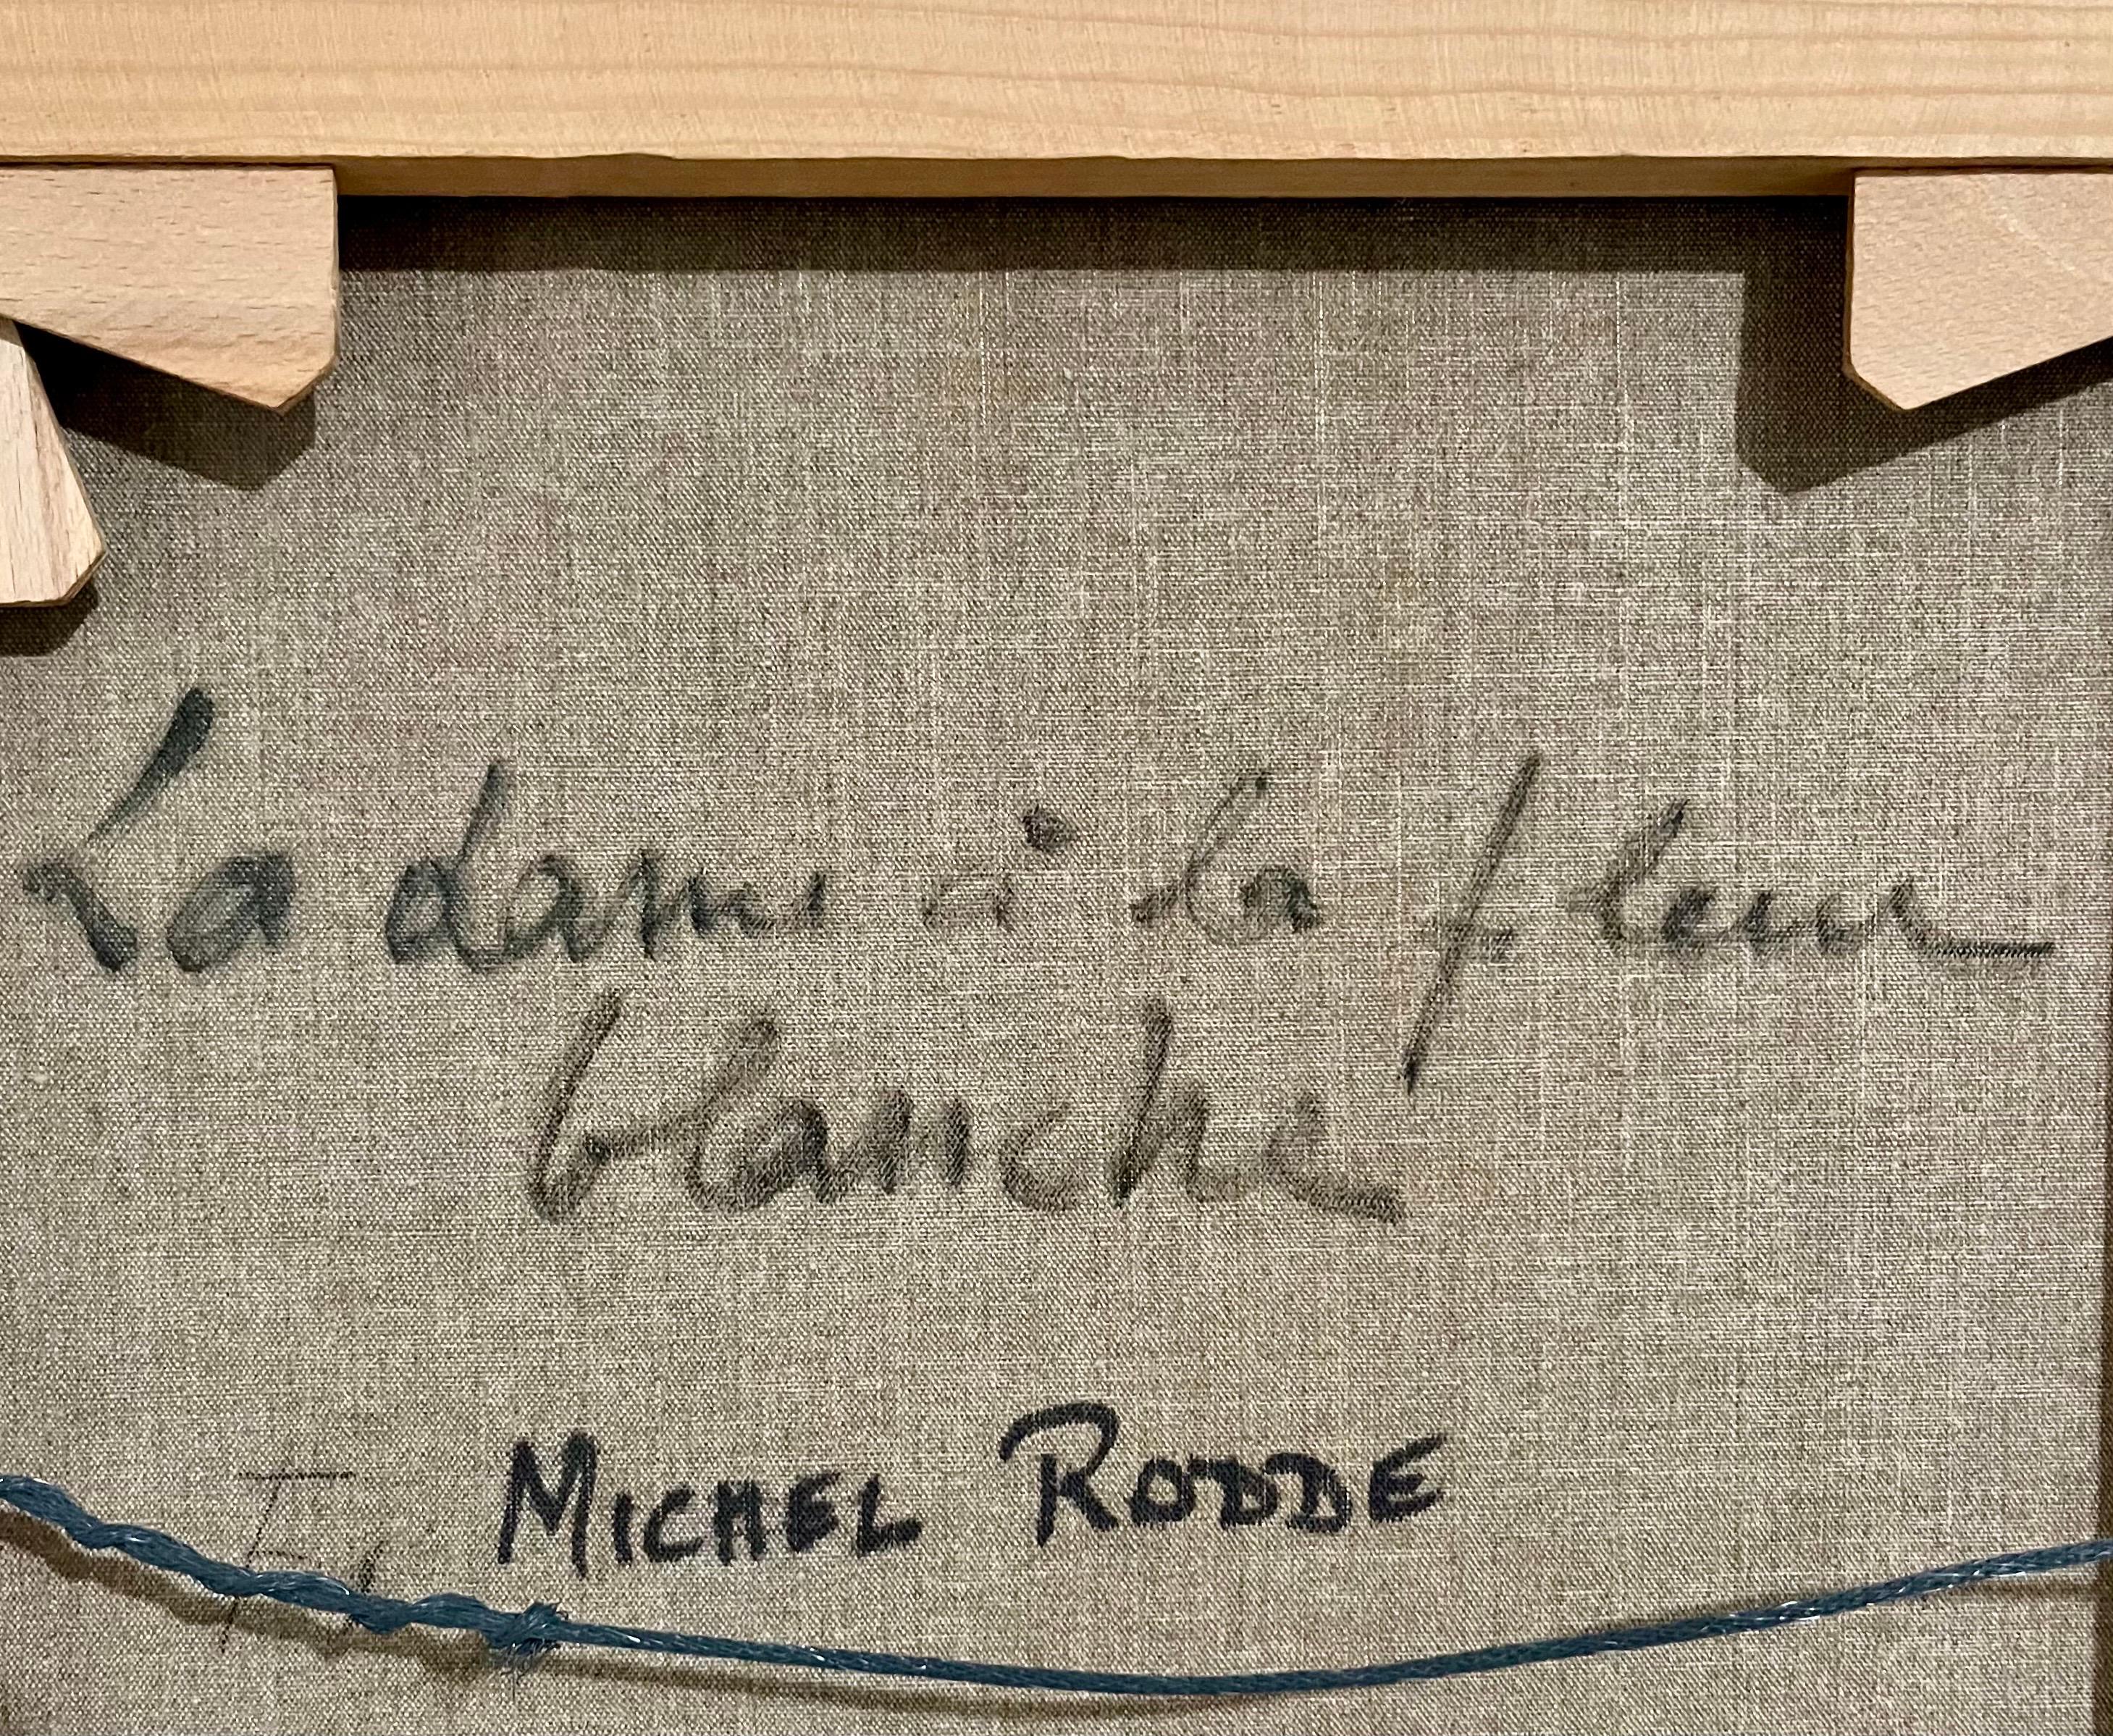 La dame à la fleur
blanche
MICHEL RODDE